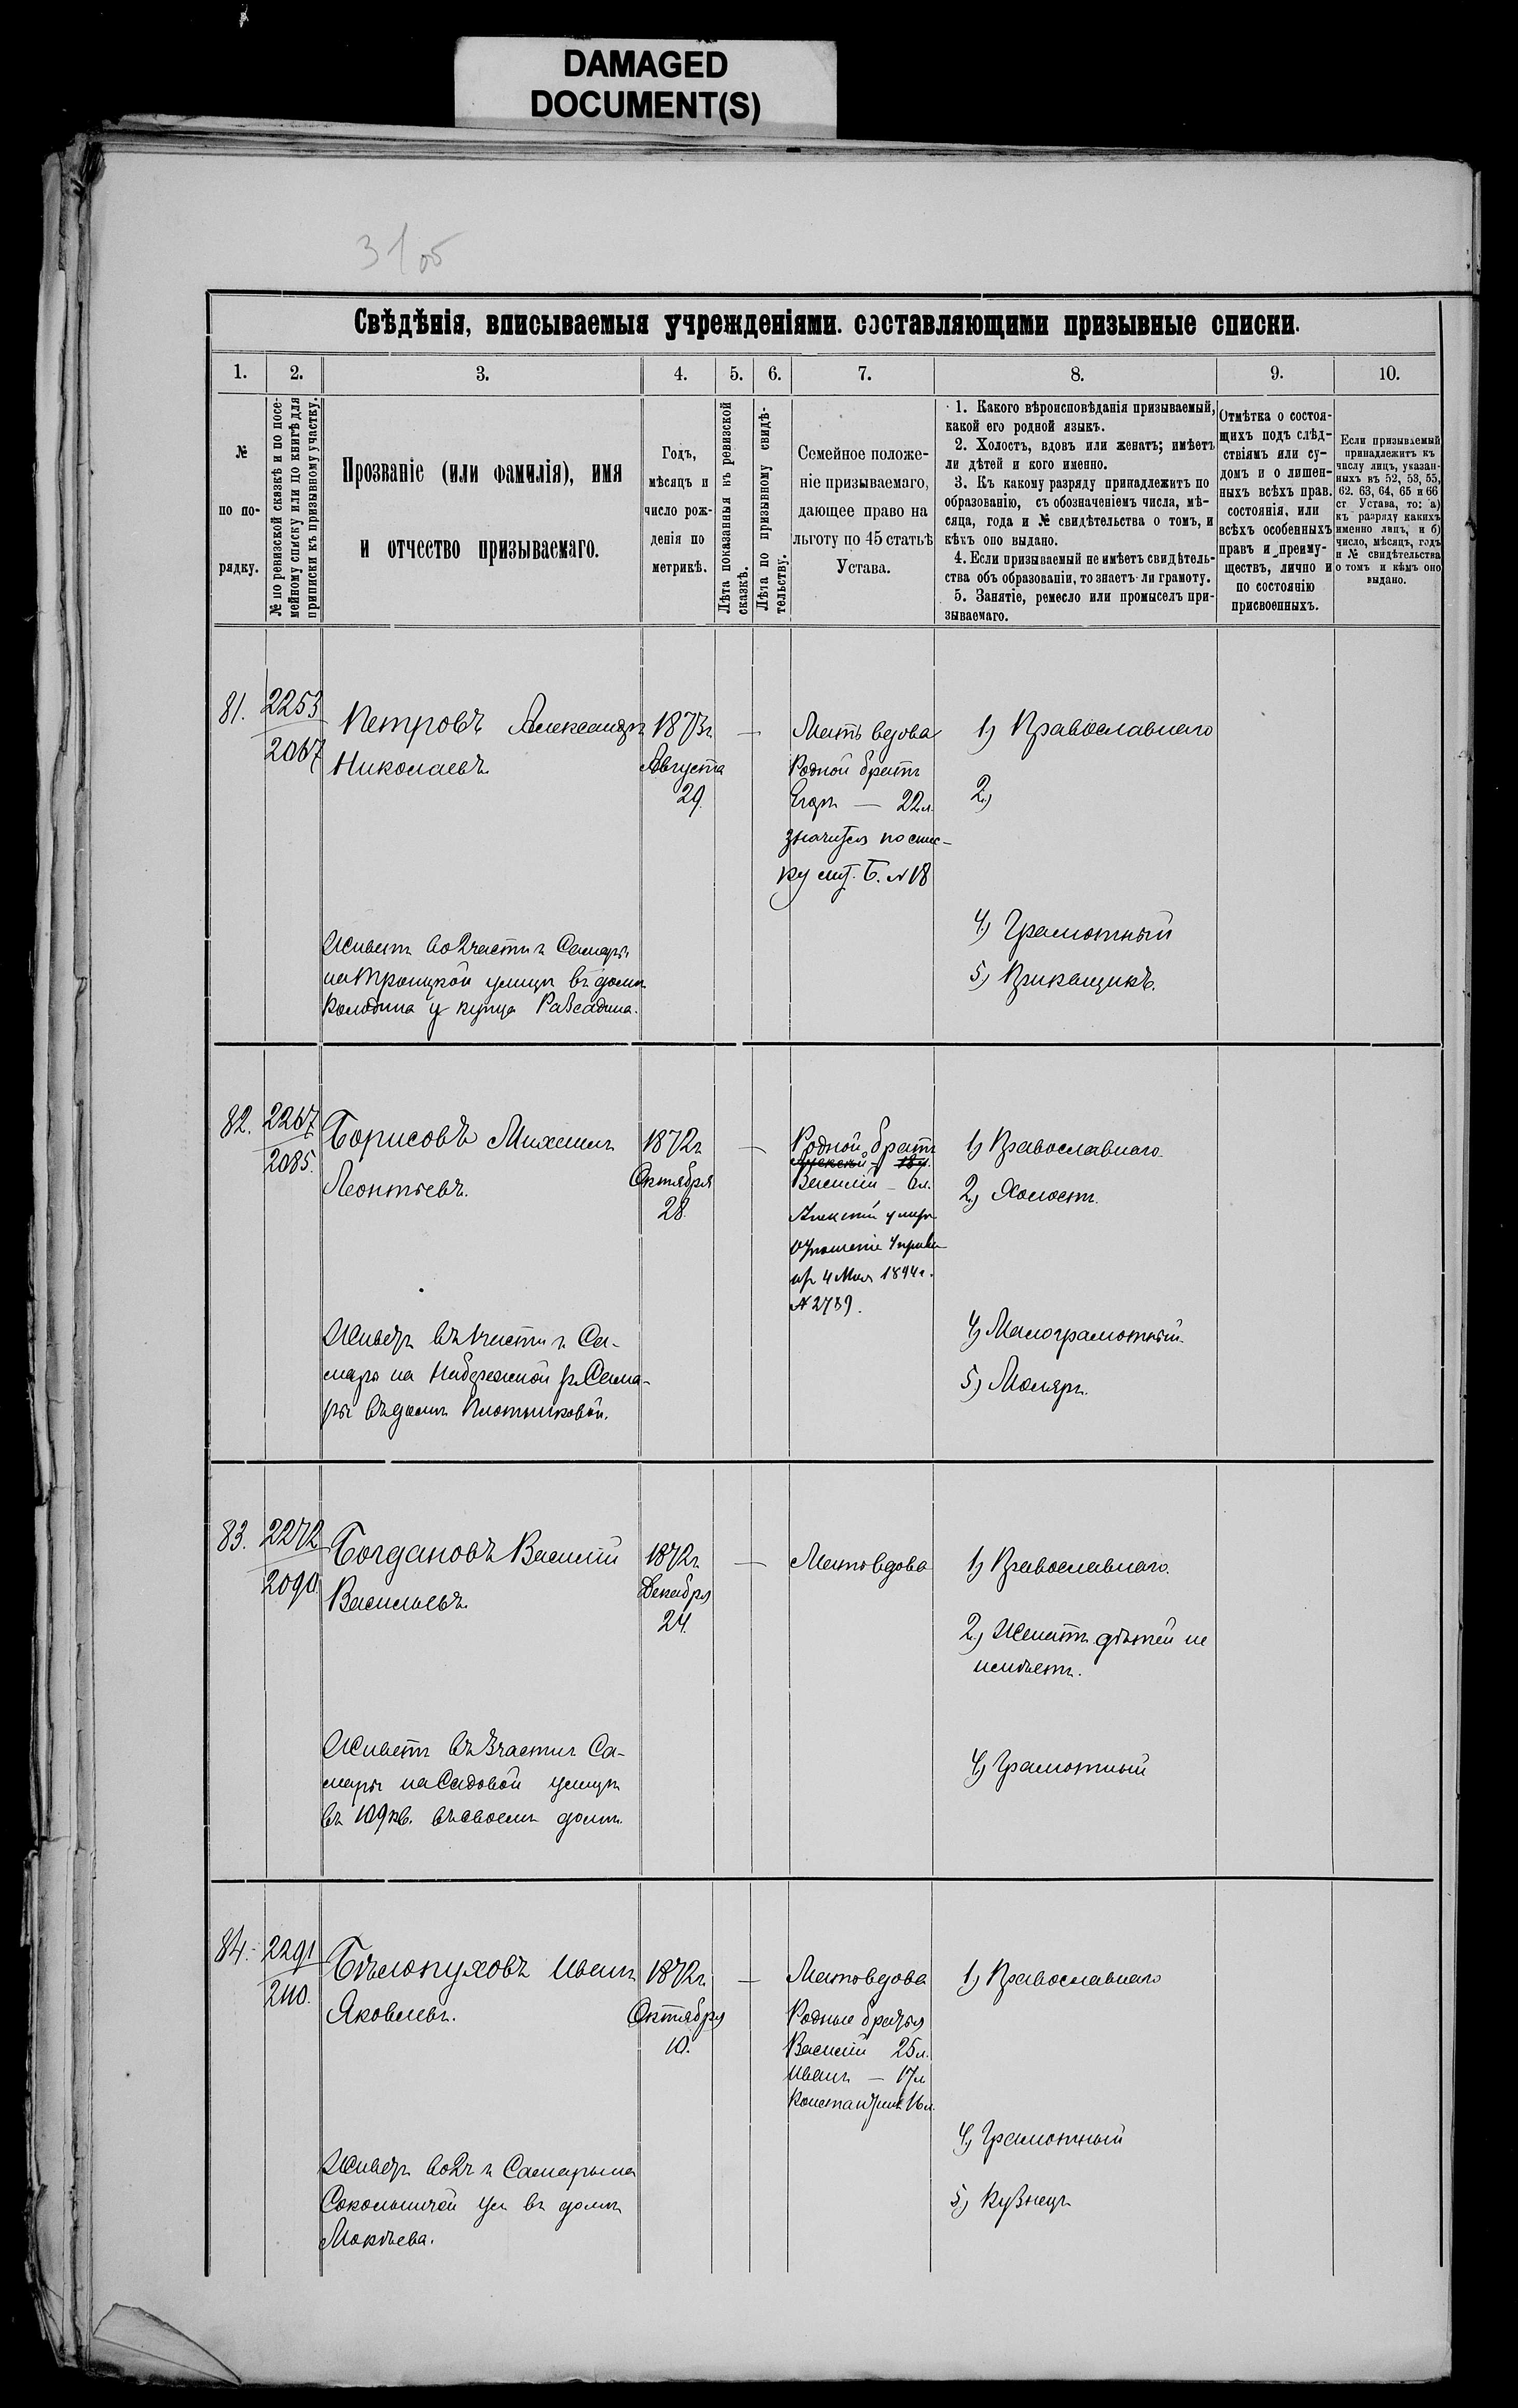 DAMAGED
DOCUMENT(S)
31об
Свѣдѣнія, вписываемыя учрежденіями. составляющими призывные списки.
1. 2. 3. 4. 5. 6. 7. 8. 9. 10.
№
по по-
рядку.
№ по ревизской сказкѣ и по посе-
мейному списку или по книгѣ для
приписки къ призывному участку.
Прозваніе (или фамилія), имя
и отчество призываемаго.
Годъ,
мѣсяцъ и
число рож-
денія по
метрикѣ.
Лѣта показанныя къ ревизской
сказкѣ.
Лѣта по призывному свидѣ-
тельству.
Семейное положе-
ніе призываемаго,
дающее право на
льготу по 45 статьѣ
Устава.
1. Какого вѣроисповѣданія призываемый,
какой его родной языкъ.
2. Холостъ, вдовъ или женатъ; имѣетъ
ли дѣтей и кого именно.
3. Къ какому разряду принадлежитъ по
образованію, съ обозначеніемъ числа, мѣ-
сяца, года и № свидѣтельства о томъ, и
кѣмъ оно выдано.
4. Если призываемый не имѣетъ свидѣтель-
ства объ образованіи, то знаетъ ли грамоту.
5. Занятіе, ремесло или промыселъ при-
зываемаго.
Отмѣтка о состоя-
щихъ подъ слѣд-
ствіямъ или су-
домъ и о лишен-
ныхъ всѣхъ прав.
состоянія, или
всѣхъ особенныхъ
правъ и преиму-
ществъ, лично и
по состоянію
присвоенныхъ.
Если призываемый
принадлежитъ къ
числу лицъ, указан-
ныхъ въ 52, 53, 55,
62. 63, 64, 65 и 66
ст Устава, то: а)
къ разряду какихъ
именно лицъ, и б)
число, мѣсяцъ, годъ
и № свидѣтельства
о томъ и кѣмъ оно
выдано.
81.
2253
2067
Петровъ Александръ
Николаевъ
1873г.
Августа
29.
—
Мать вдова
Родной братъ
Егоръ — 22л.
значится по спис-
ку лит. Б. №18
1) Православнаго
2)
4) Грамотный
5) Прикащикъ.
Живетъ во 2 части г. Самары
на Троицкой улицѣ въ домѣ
Колодина у купца
82.
2267
2085.
Борисовъ Михаилъ
Леонтьевъ.
1872г.
Октября
28
—
Родной братъ
Алексѣй – 18л.
Василій – 6л.
Алексѣй умеръ
Отношеніе Управы
от 4 Мая 1894г.
№ 2789.
1) Православнаго
2) Холостъ.
4) Малограмотный.
5) Маляръ.
Живетъ въ 1 части г. Са-
мары на Набережной р. Сама-
ры въ домѣ Плотниковой.
83.
2272
2090.
Богдановъ Василій
Васильевъ.
1872г.
Декабря
24.
—
Мать вдова
1) Православнаго.
2) Женатъ дѣтей не
имѣетъ.
4) Грамотный
Живетъ въ 3 части г. Са-
мары на Садовой улицѣ
въ 109 кв. въ своемъ домѣ.
84.
2291
2110.
Бѣлопуховъ Иванъ
Яковлевъ.
1872г.
Октября
10.
—
Мать вдова
Родные братья
Василій 25л.
Иванъ — 17л
Константинъ 16л.
1) Православнаго
4) Грамотный
5) Кузнецъ
Живетъ во 2 ч. г. Самары на
Сокольничей ул въ домѣ
Мокѣева.